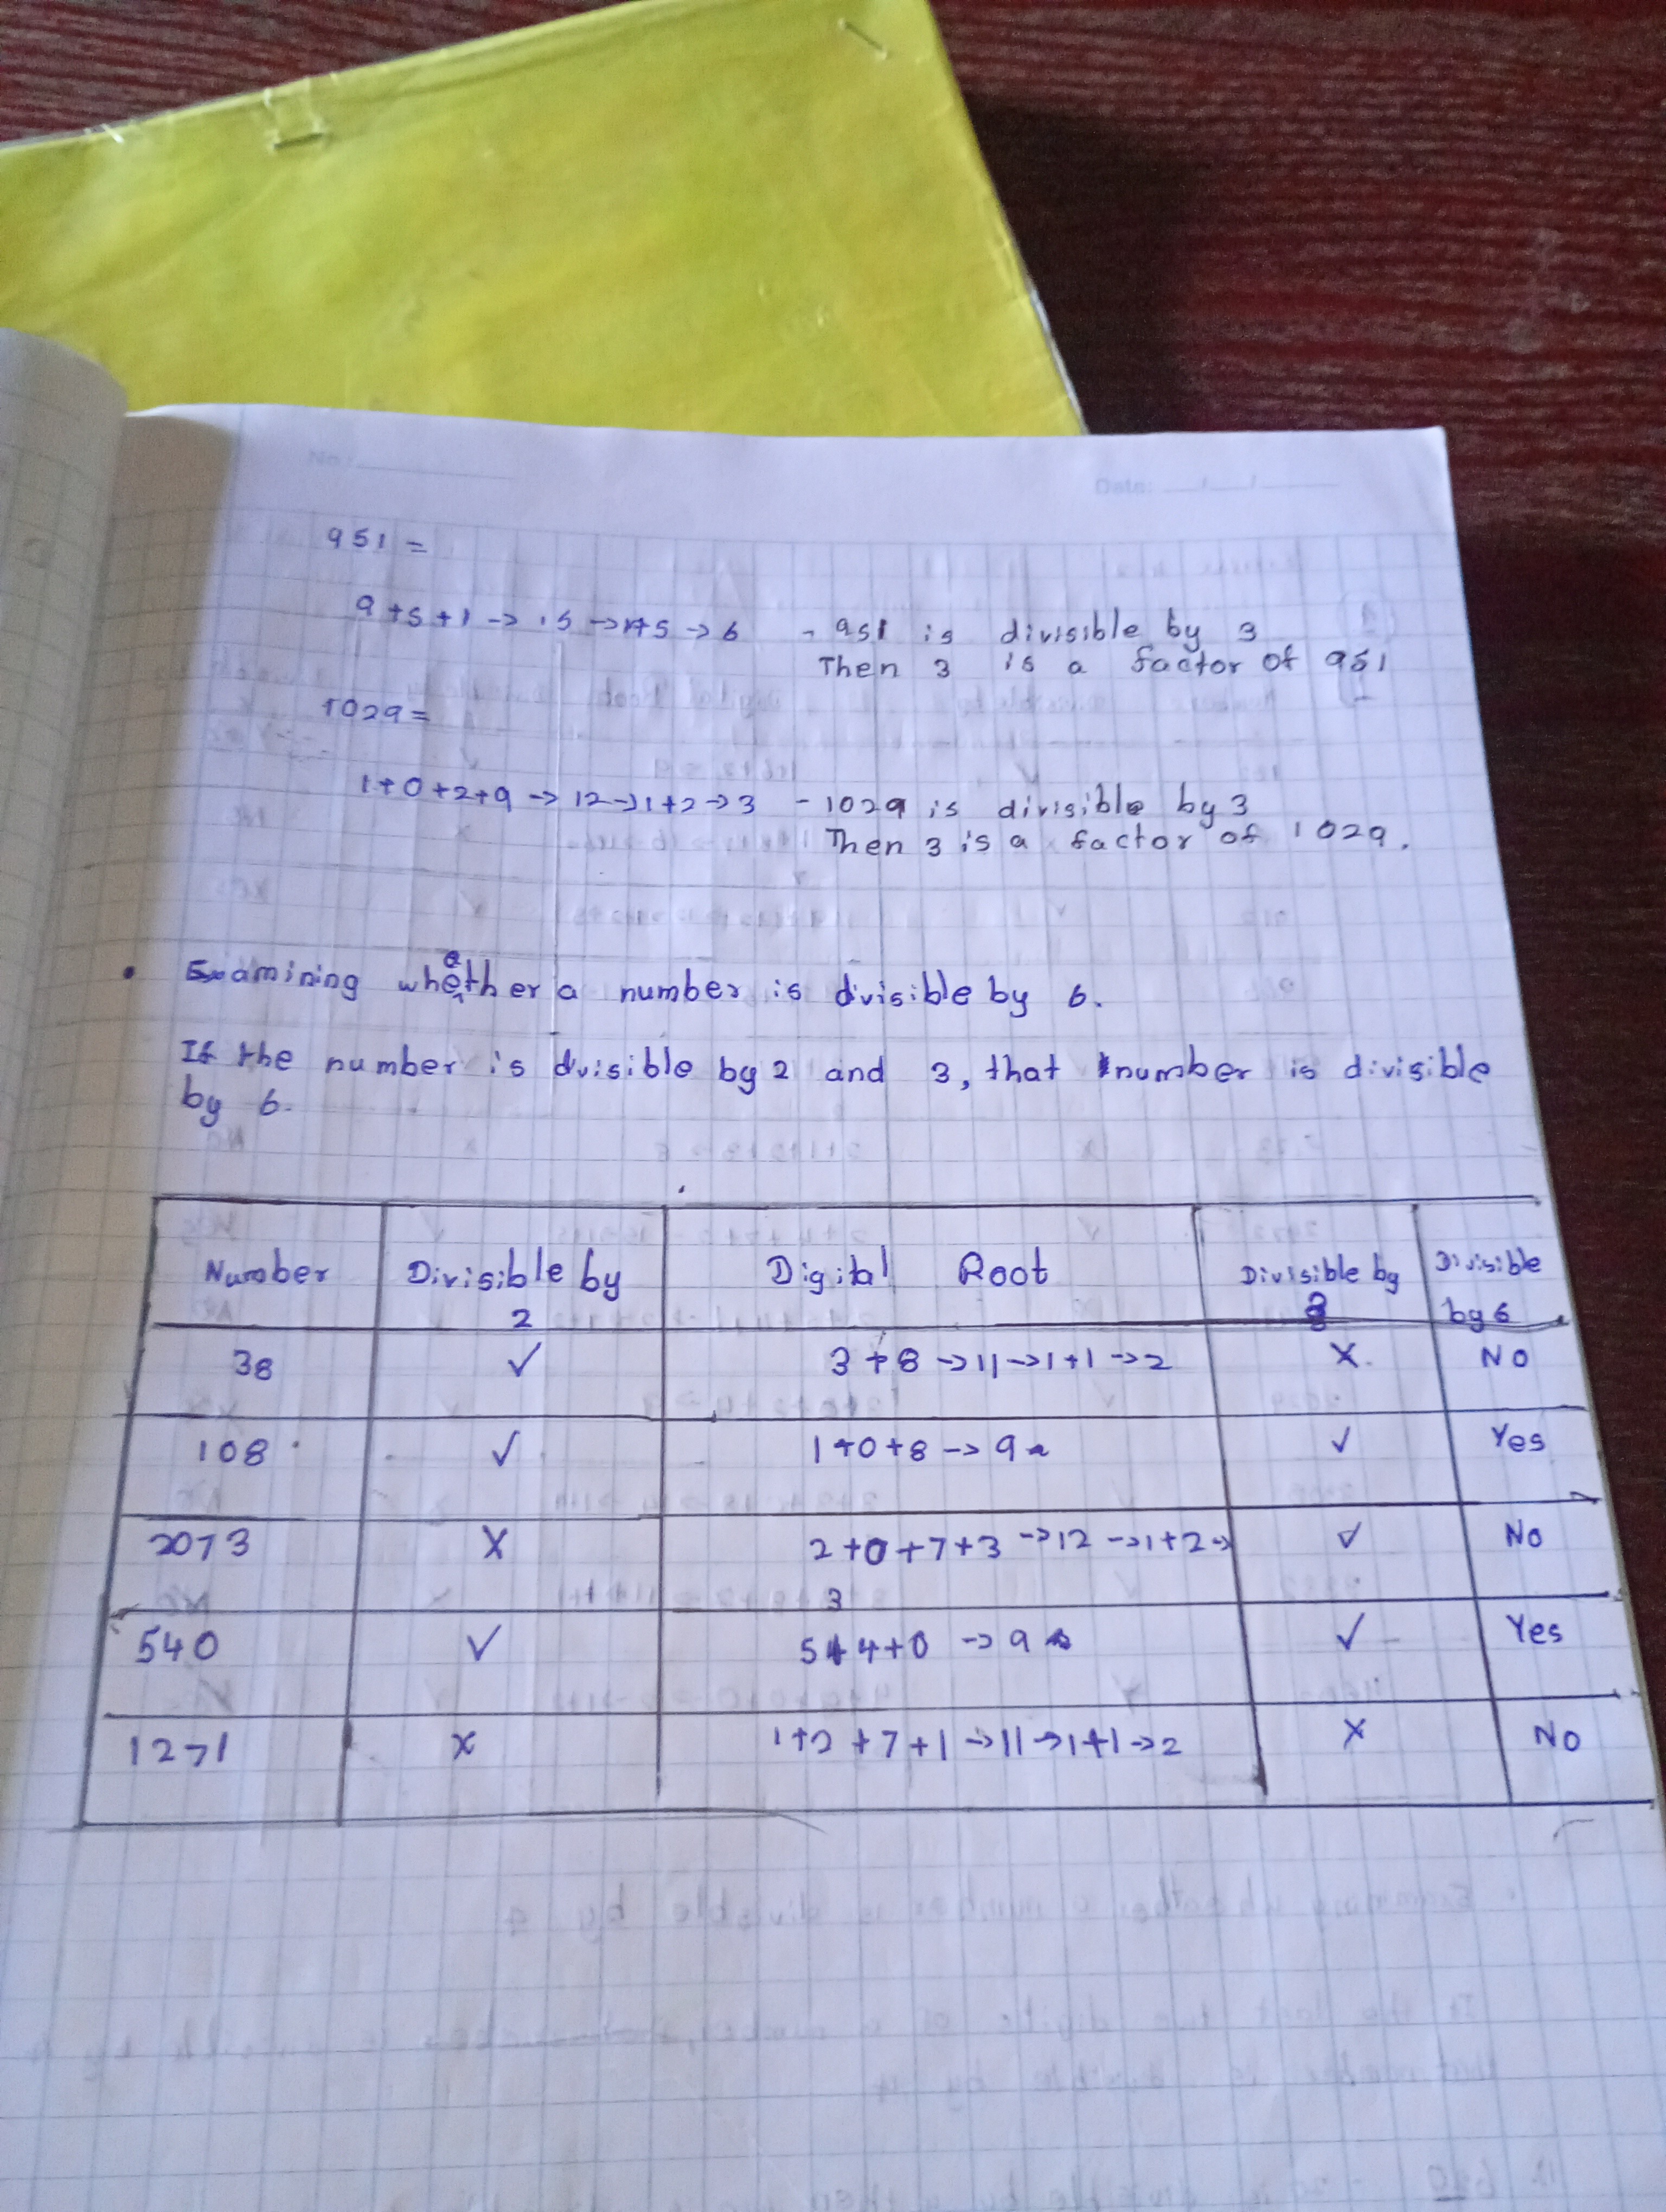 No:
Date: / /
951 =
9+5+1 -> 15 -> 1+5 -> 6 - 951 is divisible by 3
Then 3 is a factor of 951
1029 =
1+0+2+9 -> 12 -> 1+2 -> 3 - 1029 is divisible by 3
Then 3 is a factor of 1029.
• Examining wheather a number is divisible by 6.
If the number is divisible by 2 and 3, that number is divisible
by 6.
Number Divisible by 2 Digital Root Divisible by 3 Divisible by 6
38 ✓ 3+8 -> 11 -> 1+1 -> 2 X No
108 ✓ 1+0+8 -> 9 ✓ Yes
2073 X 2+0+7+3 -> 12 -> 1+2 -> 3 ✓ No
540 ✓ 5+4+0 -> 9 ✓ Yes
1271 X 1+2+7+1 -> 11 -> 1+1 -> 2 X No